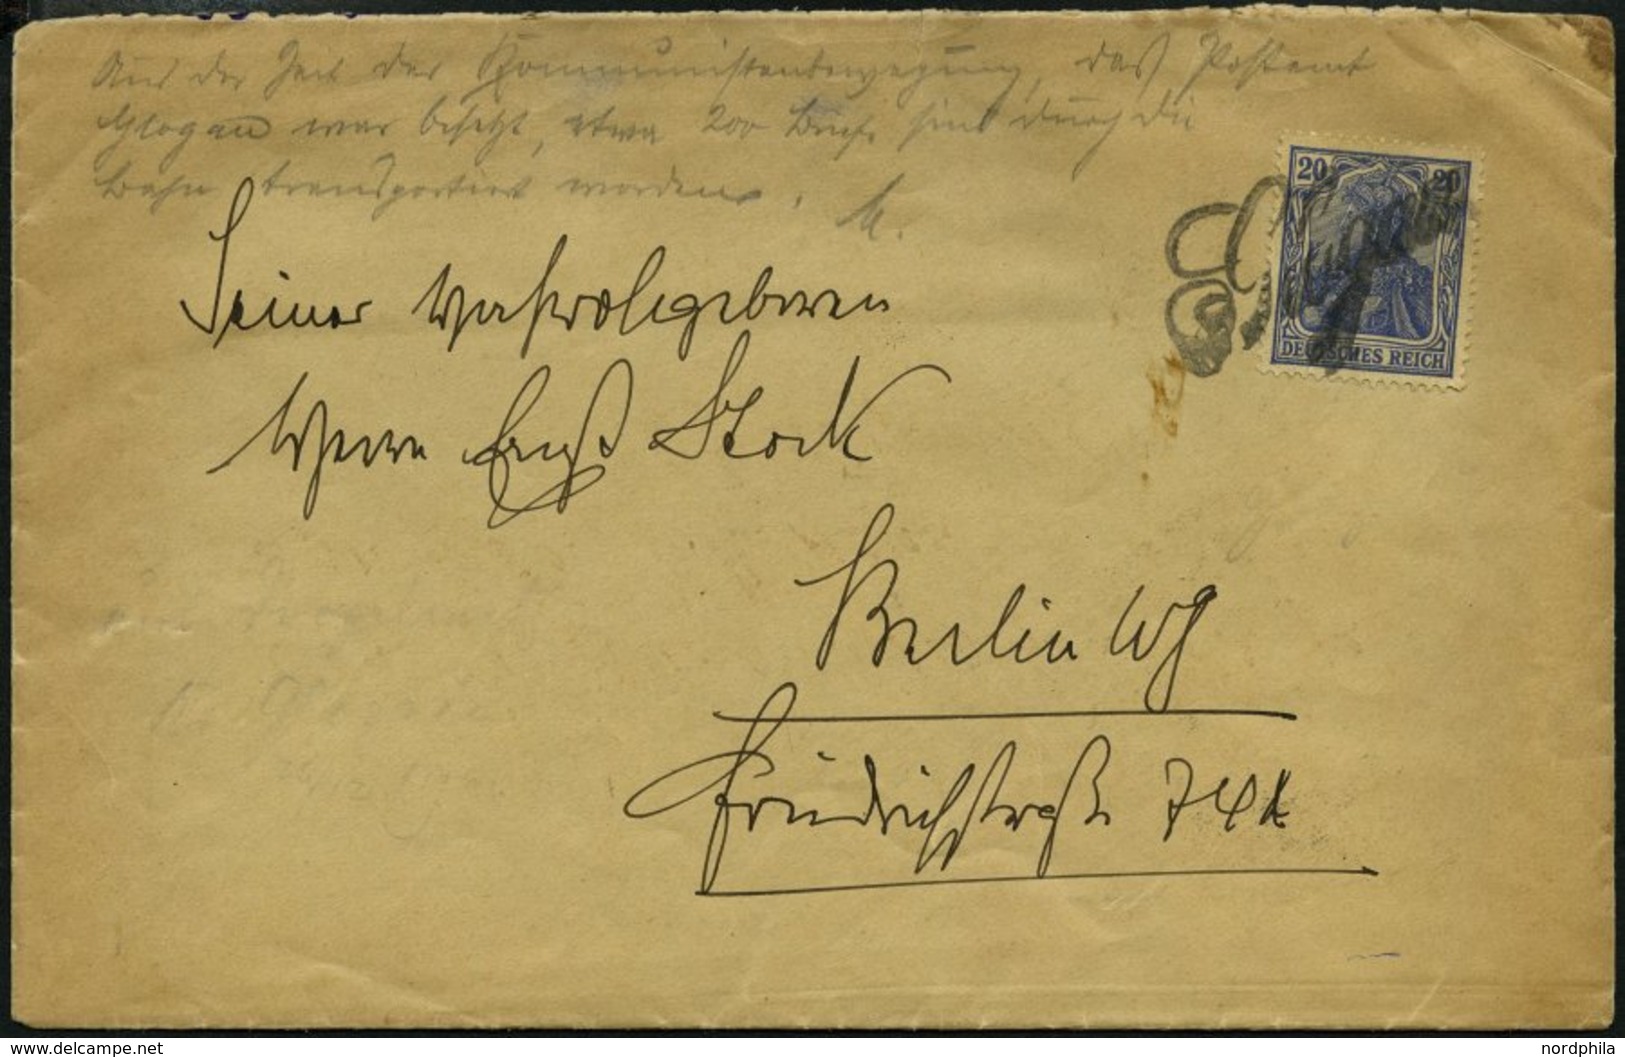 Aus der Zeit der Kommunistenbewegung, das Postamt
Glogau war besetzt, etwa 200 Briefe sind durch die
Bahn transportiert worden.
20 20
DEUTSCHES REICH
Seiner Hochwohlgeboren
Herrn Ernst Stock
Berlin W
Friedrichstraße 74
nordphila
www.delcampe.net
nordphila